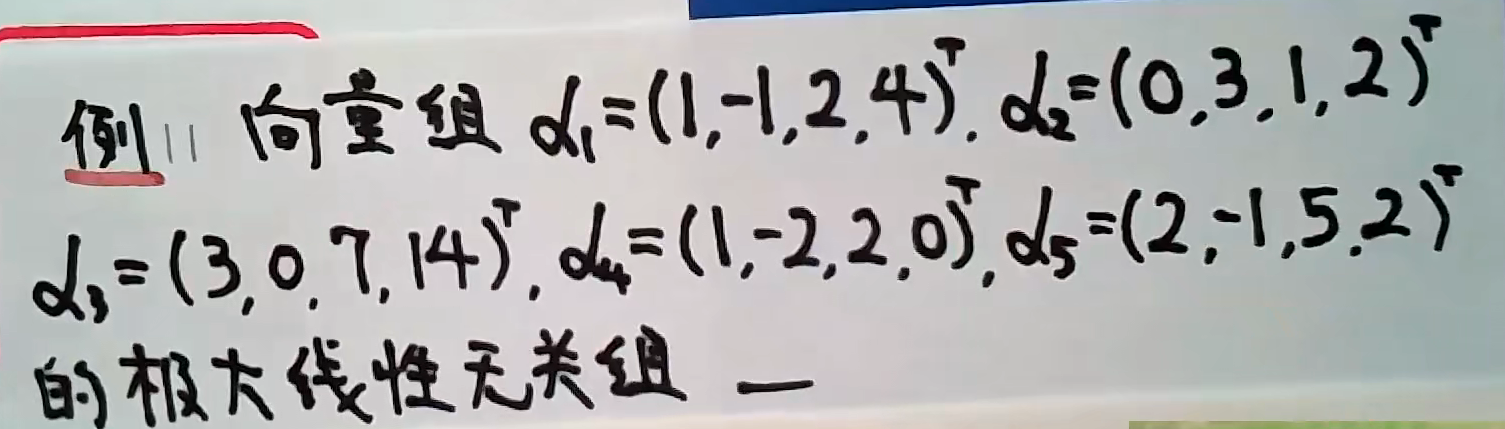 例11 向量组 α₁=(1,-1,2,4)ᵀ, α₂=(0,3,1,2)ᵀ
α₃=(3,0,7,14)ᵀ, α₄=(1,-2,2,0)ᵀ, α₅=(2,-1,5,2)ᵀ
的极大线性无关组 —